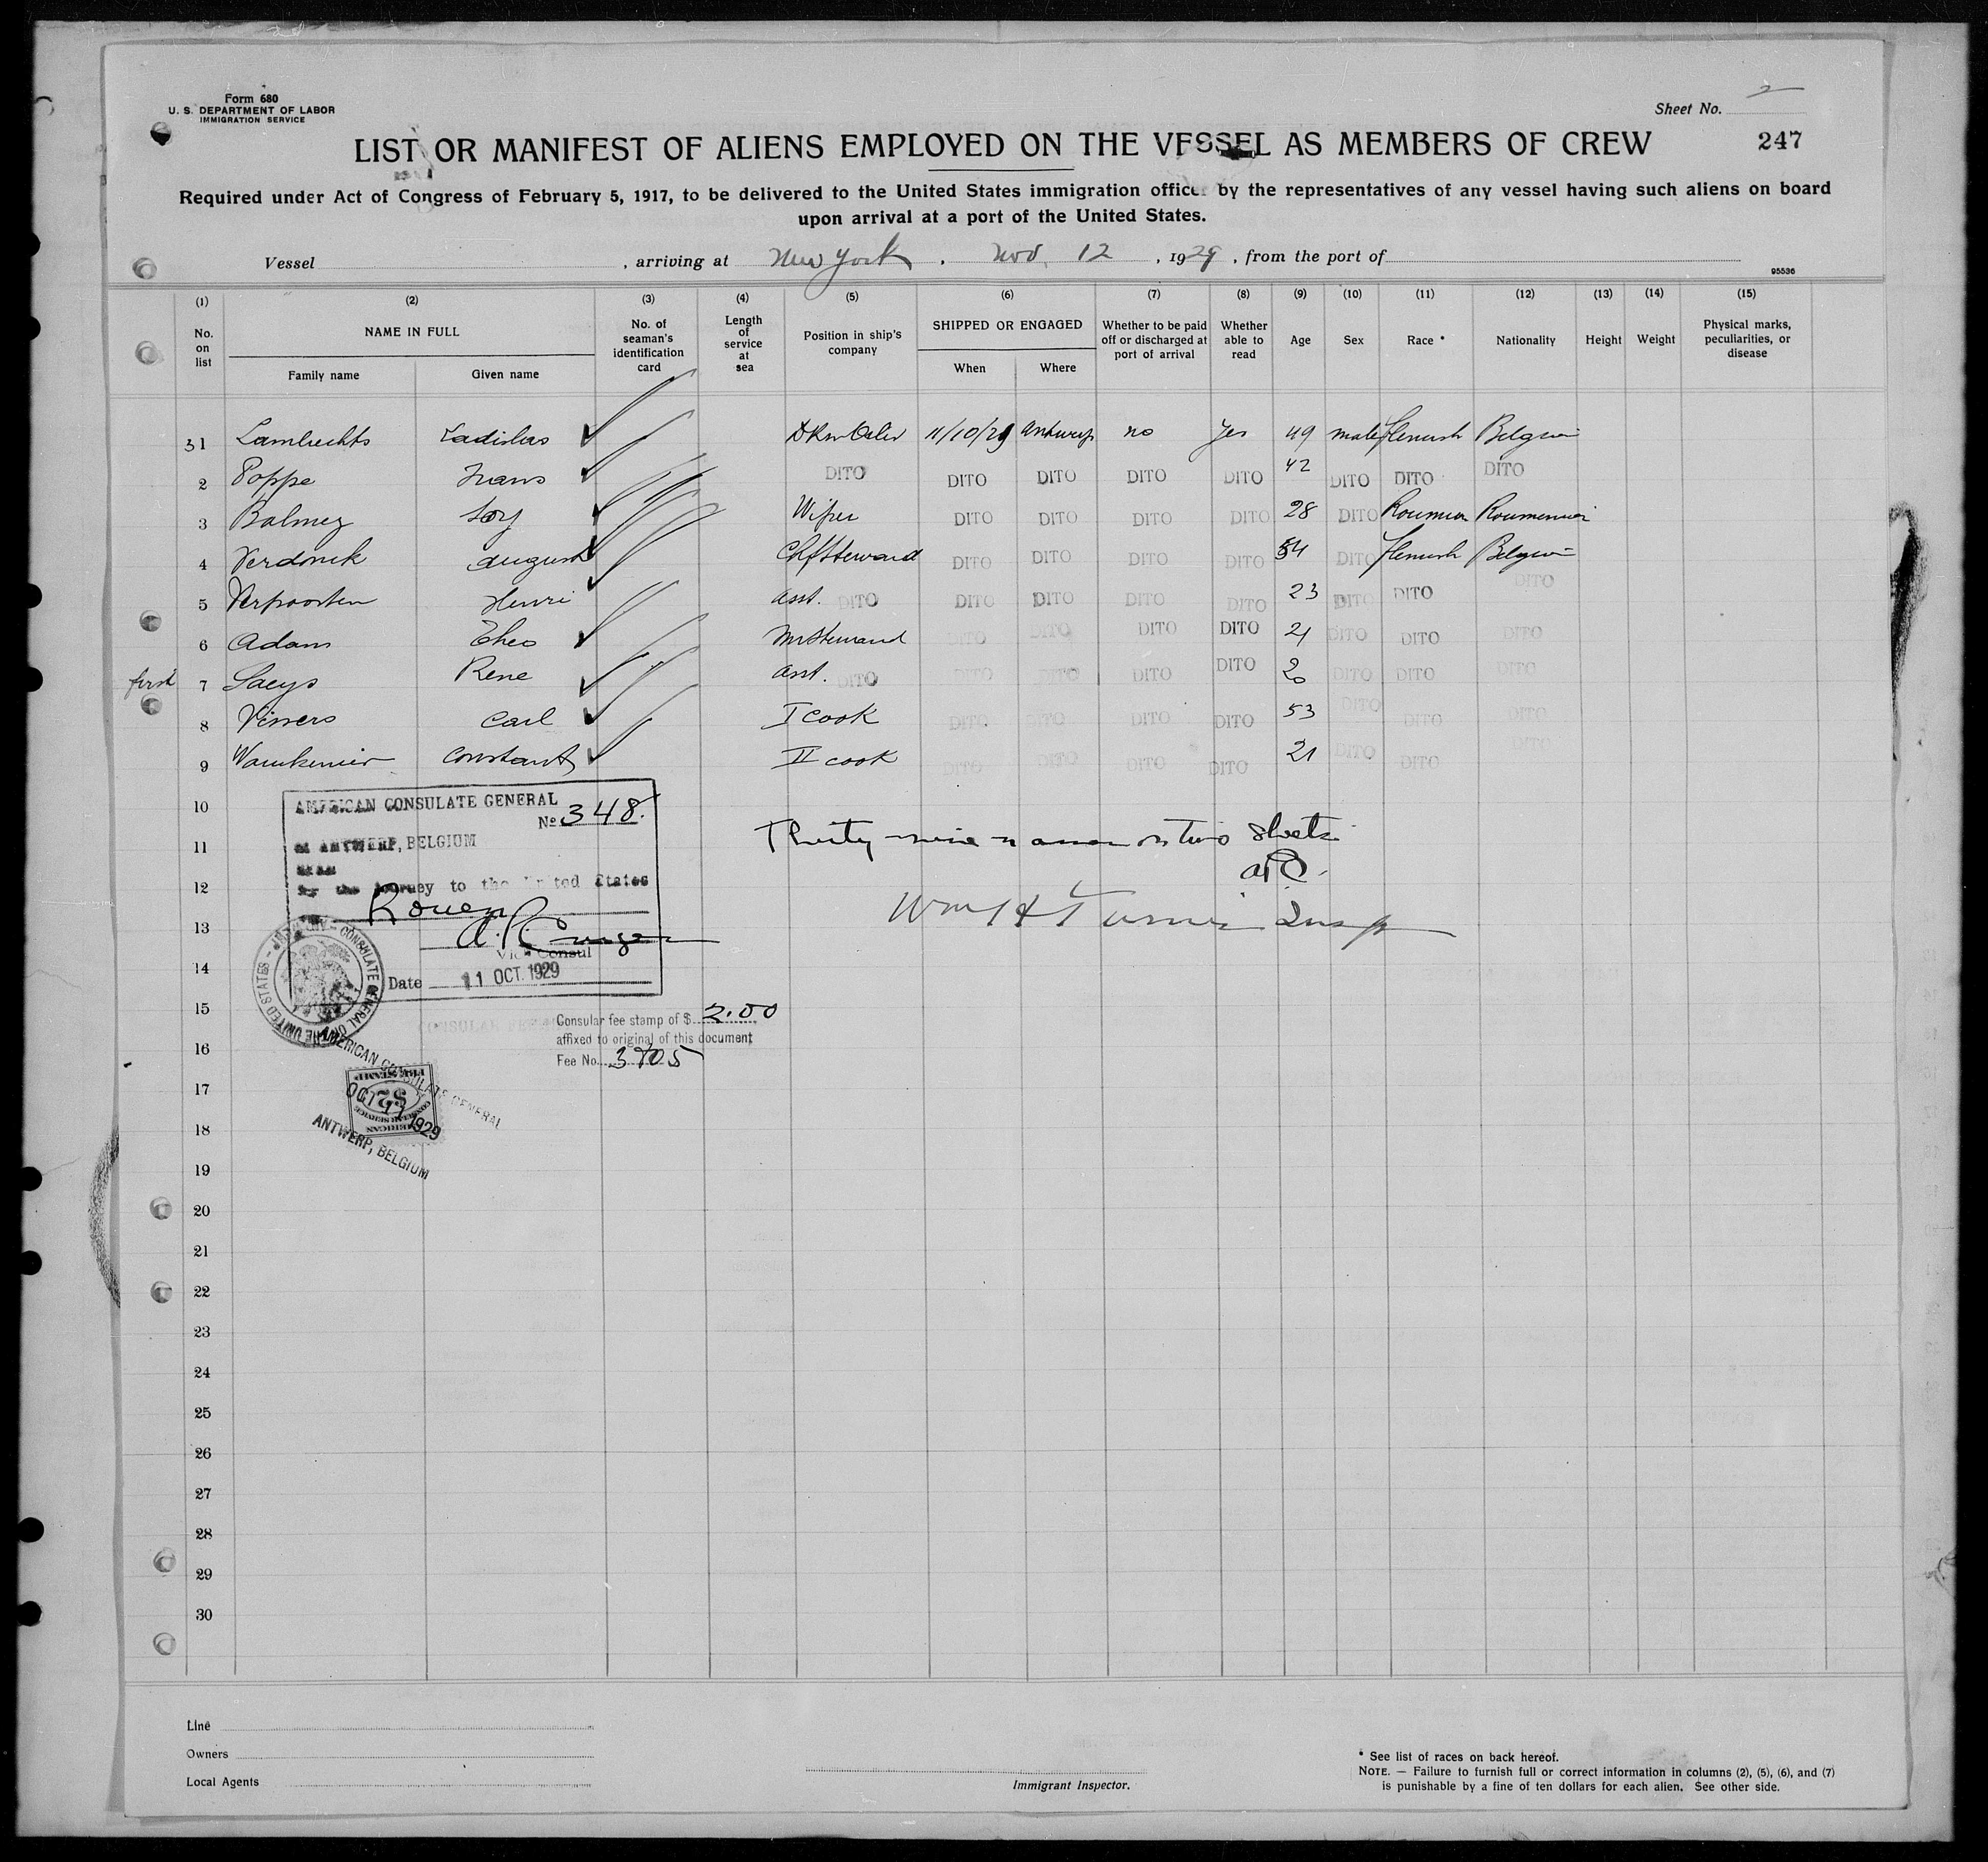 Form 680
U. S. DEPARTMENT OF LABOR
IMMIGRATION SERVICE
Sheet No. 2
LIST OR MANIFEST OF ALIENS EMPLOYED ON THE VESSEL AS MEMBERS OF CREW 247
Required under Act of Congress of February 5, 1917, to be delivered to the United States immigration officer by the representatives of any vessel having such aliens on board
upon arrival at a port of the United States.
Vessel , arriving at New York , Nov. 12 , 1929 , from the port of
95536
(1) (2) (3) (4) (5) (6) (7) (8) (9) (10) (11) (12) (13) (14) (15)
No. on list NAME IN FULL Family name Given name No. of seaman's identification card Length of service at sea Position in ship's company SHIPPED OR ENGAGED When Where Whether to be paid off or discharged at port of arrival Whether able to read Age Sex Race * Nationality Height Weight Physical marks, peculiarities, or disease
31 Lambrechts Ladislas 11/10/29 Antwerp no Yes 49 male Flemish
2 Poppe Frans DITO DITO DITO DITO DITO 42 DITO DITO DITO
3 Balmez Wiper DITO DITO DITO DITO 28 DITO
4 Verdonck August Chf Steward DITO DITO DITO DITO 54 DITO Flemish
5 Verpoorten Henri asst. DITO DITO DITO DITO DITO 23 DITO DITO DITO
6 Adam Theo DITO DITO DITO DITO 21 DITO DITO DITO
first 7 Saeys Rene asst. DITO DITO DITO DITO DITO 20 DITO DITO DITO
8 Vissers Carl I cook DITO DITO DITO DITO 53 DITO DITO DITO
9 Constant II cook DITO DITO DITO DITO 21 DITO DITO DITO
10
11
12
13
14
15
16
17
18
19
20
21
22
23
24
25
26
27
28
29
30
AMERICAN CONSULATE GENERAL
No 348.
at ANTWERP, BELGIUM
for the journey to the United States
Rouen
Vice Consul
Date 11 OCT. 1929
Thirty-nine names on two sheets
Wm H Turner Insp
Consular fee stamp of $ 2.00
affixed to original of this document
Fee No. 3805
AMERICAN CONSULATE GENERAL
OCT 11 1929
ANTWERP, BELGIUM
$2
Line
Owners
Local Agents
Immigrant Inspector.
* See list of races on back hereof.
NOTE. — Failure to furnish full or correct information in columns (2), (5), (6), and (7)
is punishable by a fine of ten dollars for each alien. See other side.